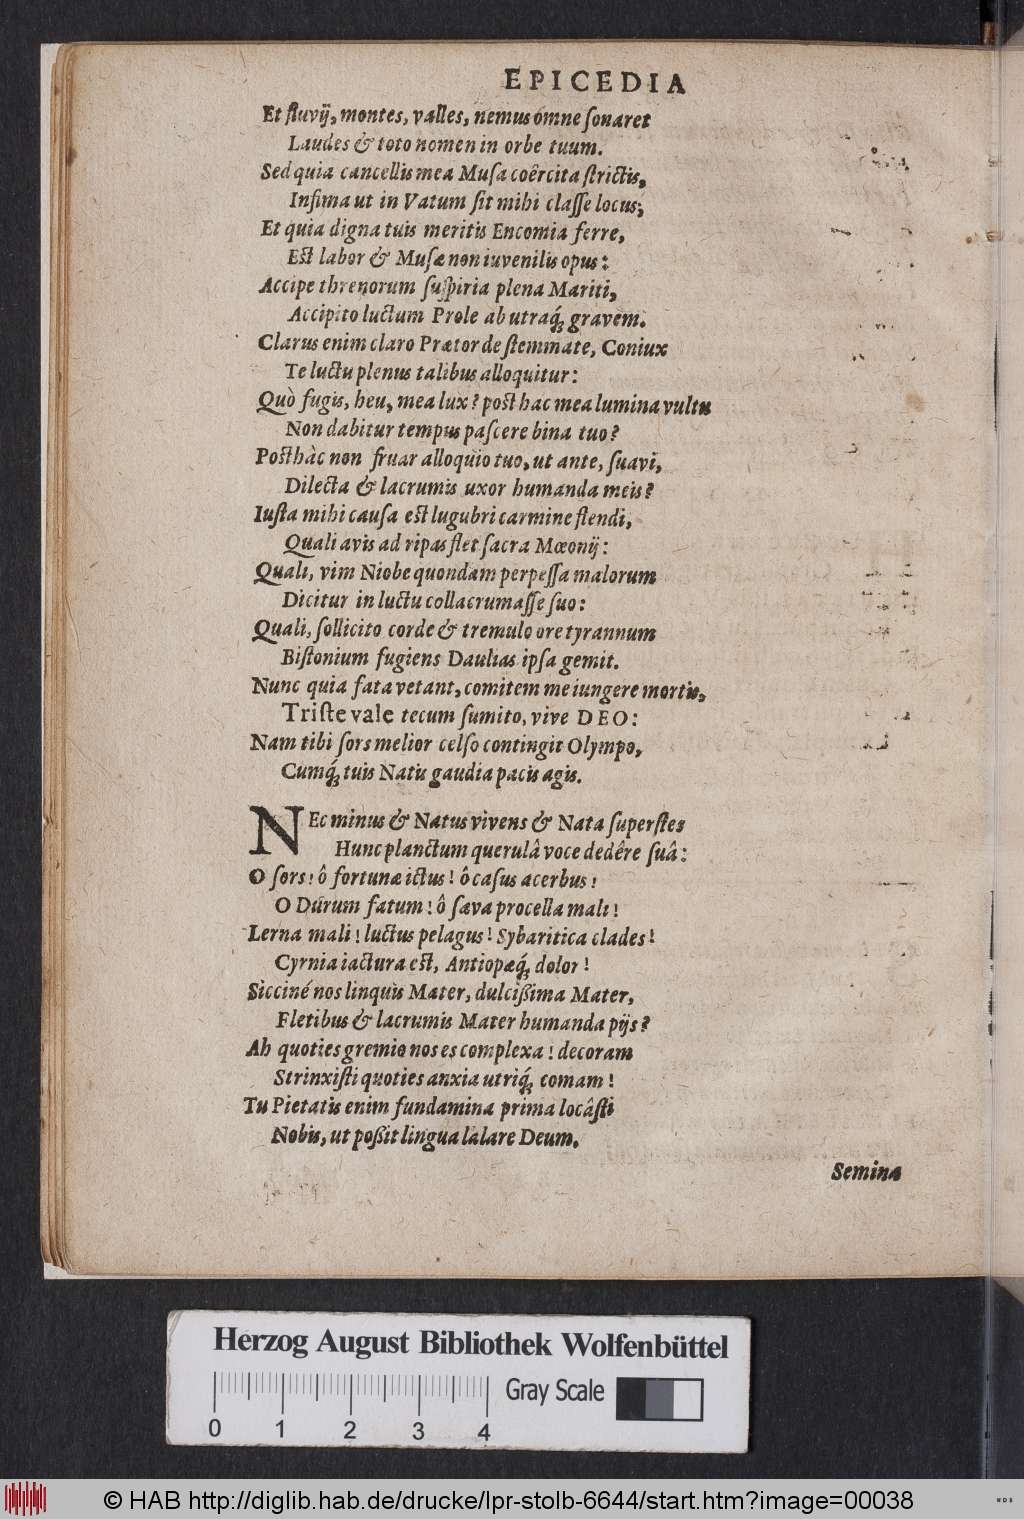 EPICEDIA
Et fluvij, montes, valles, nemus omne ſonaret
Laudes & toto nomen in orbe tuum.
Sed quia cancellis mea Muſa coêrcita ſtrictis,
Infima ut in Vatum ſit mihi claſſe locus;
Et quia digna tuis meritis Encomia ferre,
Eſt labor & Muſæ non iuvenilis opus:
Accipe threnorum ſuſpiria plena Mariti,
Accipito luctum Prole ab utraq́ꝫ gravem.
Clarus enim claro Prætor de ſtemmate, Coniux
Te luctu plenus talibus alloquitur:
Quò fugis, heu, mea lux? poſt hac mea lumina vultu
Non dabitur tempus paſcere bina tuo?
Poſthàc non fruar alloquio tuo, ut ante, ſuavi,
Dilecta & lacrumis uxor humanda meis?
Iuſta mihi cauſa eſt lugubri carmine flendi,
Quali avis ad ripas flet ſacra Mœonij:
Quali, vim Niobe quondam perpeſſa malorum
Dicitur in luctu collacrumaſſe ſuo:
Quali, ſollicito corde & tremulo ore tyrannum
Biſtonium fugiens Daulias ipſa gemit.
Nunc quia fata vetant, comitem me iungere mortis,
Triſte vale tecum ſumito, vive DEO:
Nam tibi ſors melior celſo contingit Olympo,
Cumq́ꝫ tuis Natis gaudia pacis agis.
NEc minus & Natus vivens & Nata ſuperſtes
Hunc planctum querulâ voce dedêre ſuâ:
O ſors! ô fortunæ ictus! ô caſus acerbus!
O Durum fatum! ô ſæva procella mali!
Lerna mali! luctus pelagus! Sybaritica clades!
Cyrnia iactura eſt, Antiopæq́ꝫ dolor!
Sicciné nos linquis Mater, dulciſſima Mater,
Fletibus & lacrumis Mater humanda pijs?
Ah quoties gremio nos es complexa! decoram
Strinxiſti quoties anxia utriq́ꝫ comam!
Tu Pietatis enim fundamina prima locâſti
Nobis, ut poſſit lingua lalare Deum.
Semina
Herzog August Bibliothek Wolfenbüttel
Gray Scale
0 1 2 3 4
© HAB http://diglib.hab.de/drucke/lpr-stolb-6644/start.htm?image=00038